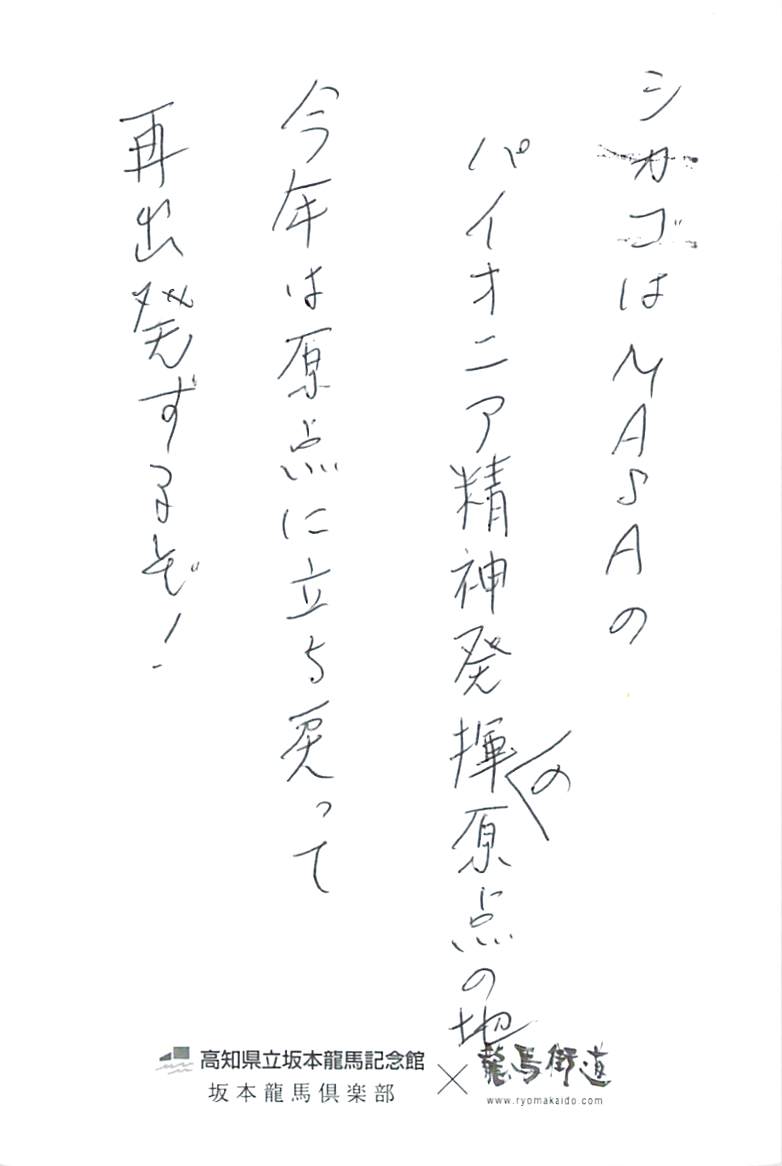 シカゴはMASAの
パイオニア精神発揮の原点の地
今年は原点に立ち戻って
再出発ずるぞ!
高知県立坂本龍馬記念館
坂本龍馬倶楽部
×
龍馬街道
www.ryomakaido.com